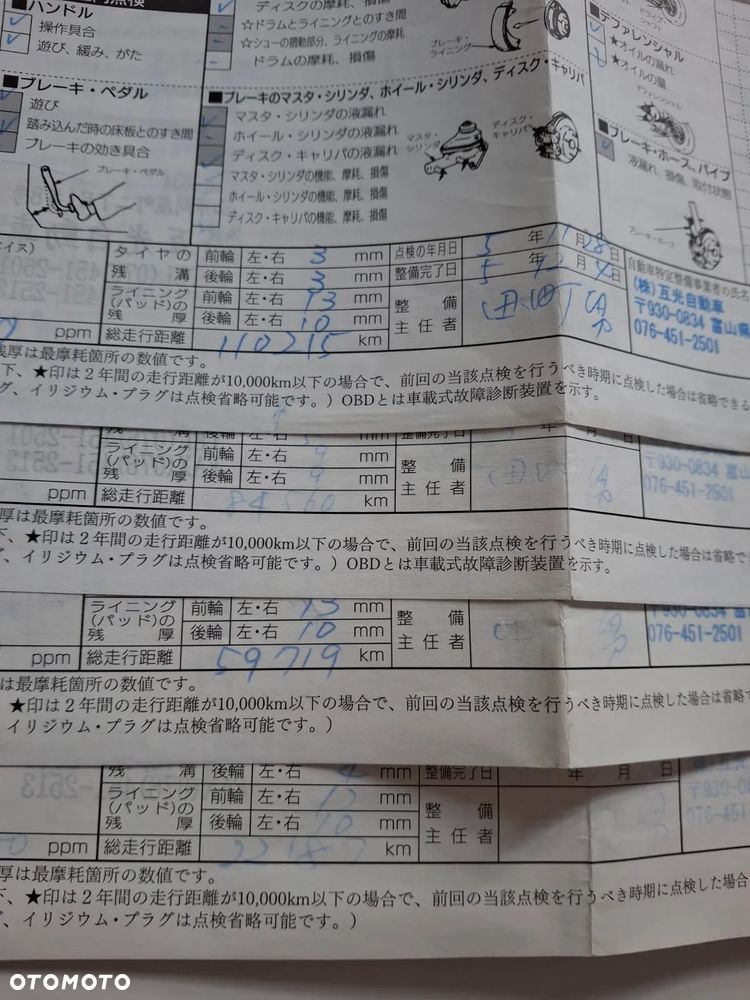 ■ハンドル
操作具合
遊び、緩み、がた
■ブレーキ・ペダル
遊び
踏み込んだ時の床板とのすき間
ブレーキの効き具合
ブレーキ・ペダル
ディスクの摩耗、損傷
☆ドラムとライニングとのすき間
☆シューの摺動部分、ライニングの摩耗
ドラムの摩耗、損傷
ブレーキ・
ライニング
■ブレーキのマスタ・シリンダ、ホイール・シリンダ、ディスク・キャリパ
マスタ・シリンダの液漏れ
ホイール・シリンダの液漏れ
ディスク・キャリパの液漏れ
マスタ・シリンダの機能、摩耗、損傷
ホイール・シリンダの機能、摩耗、損傷
ディスク・キャリパの機能、摩耗、損傷
マスタ・
シリンダ
ディスク・
キャリパ
デファレンシャル
★オイルの漏れ
★オイルの量
デファレンシャル
■ブレーキ・ホース、パイプ
液漏れ、損傷、取付状態
ブレーキ・ホース
タイヤの 前輪 左・右 3 mm 点検の年月日 5 年 11 月 28 日
残溝 後輪 左・右 3 mm 整備完了日 5 年 12 月 4 日
ライニング (パッド)の 残厚 前輪 左・右 13 mm 整備
後輪 左・右 10 mm 主任者
ppm 総走行距離 110215 km
自動車特定整備事業者の氏名
(株)互光自動車
〒930-0834 富山県
076-451-2501
残厚は最摩耗箇所の数値です。
下、★印は2年間の走行距離が10,000km以下の場合で、前回の当該点検を行うべき時期に点検した場合は省略できる
グ、イリジウム・プラグは点検省略可能です。）OBDとは車載式故障診断装置を示す。
残溝 後輪 左・右 mm 整備完了日
ライニング (パッド)の 残厚 前輪 左・右 9 mm 整備
後輪 左・右 9 mm 主任者
ppm 総走行距離 84560 km
〒930-0834 富山
076-451-2501
厚は最摩耗箇所の数値です。
下、★印は2年間の走行距離が10,000km以下の場合で、前回の当該点検を行うべき時期に点検した場合は省略でき
グ、イリジウム・プラグは点検省略可能です。）OBDとは車載式故障診断装置を示す。
ライニング (パッド)の 残厚 前輪 左・右 13 mm 整備
後輪 左・右 10 mm 主任者
ppm 総走行距離 59719 km
〒930-0834 富山
076-451-2501
は最摩耗箇所の数値です。
★印は2年間の走行距離が10,000km以下の場合で、前回の当該点検を行うべき時期に点検した場合は省略
イリジウム・プラグは点検省略可能です。）
残溝 後輪 左・右 4 mm 整備完了日 年 月 日
ライニング (パッド)の 残厚 前輪 左・右 mm 整備
後輪 左・右 10 mm 主任者
ppm 総走行距離 km
〒930-08
076-451
厚は最摩耗箇所の数値です。
下、★印は2年間の走行距離が10,000km以下の場合で、前回の当該点検を行うべき時期に点検した場合
グ、イリジウム・プラグは点検省略可能です。）
OTOMOTO